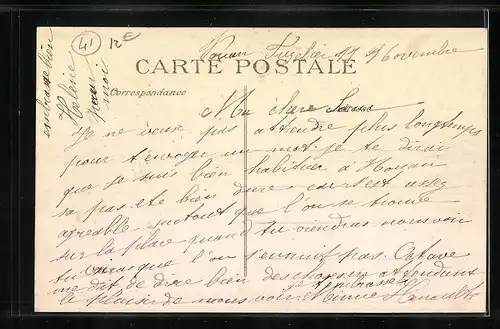 41
12E
embrasse bien
Hélène
pour
moi
17 Novembre
CARTE POSTALE
Correspondance
Ma chere Soeur
Je ne veux pas attendre plus longtemps
pour t'envoyer un mot. je te dirai
que je suis bien habituer a
sa pas eté bien dure car s'est assez
agreable surtout que l'on se trouve
sur la place quand tu viendras nous voir
tu verras que l'on s'ennuit pas Octave
me dit de dire bien des choses en attendant
le plaisir de nous voir t'embrasse